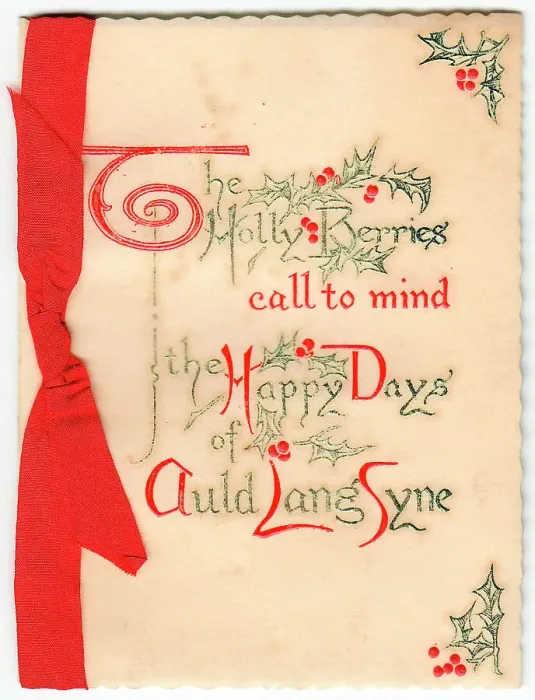 The
Holly Berries
call to mind
the Happy Days
of
Auld Lang Syne